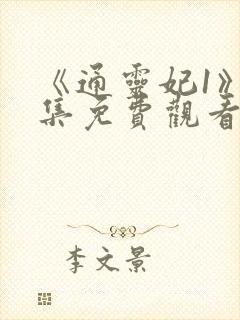 《通靈妃1》
集免費觀看
李文景